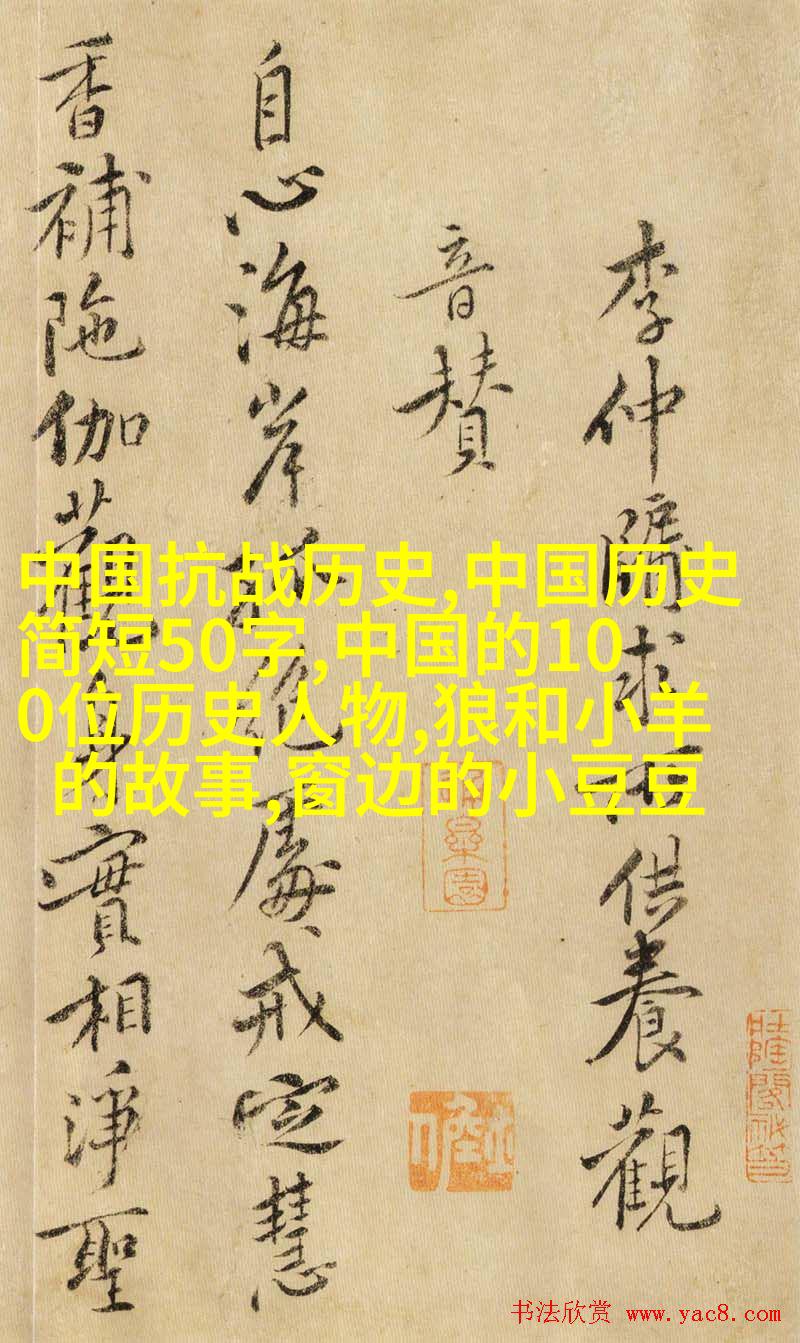 李仲求所供養觀
音賛
自心海岸孤絕處戒定慧
香補陁伽觀身實相淨聖
中国抗战历史,中国历史
简短50字,中国的10
0位历史人物,狼和小羊
的故事,窗边的小豆豆
书法欣赏 www.yac8.com